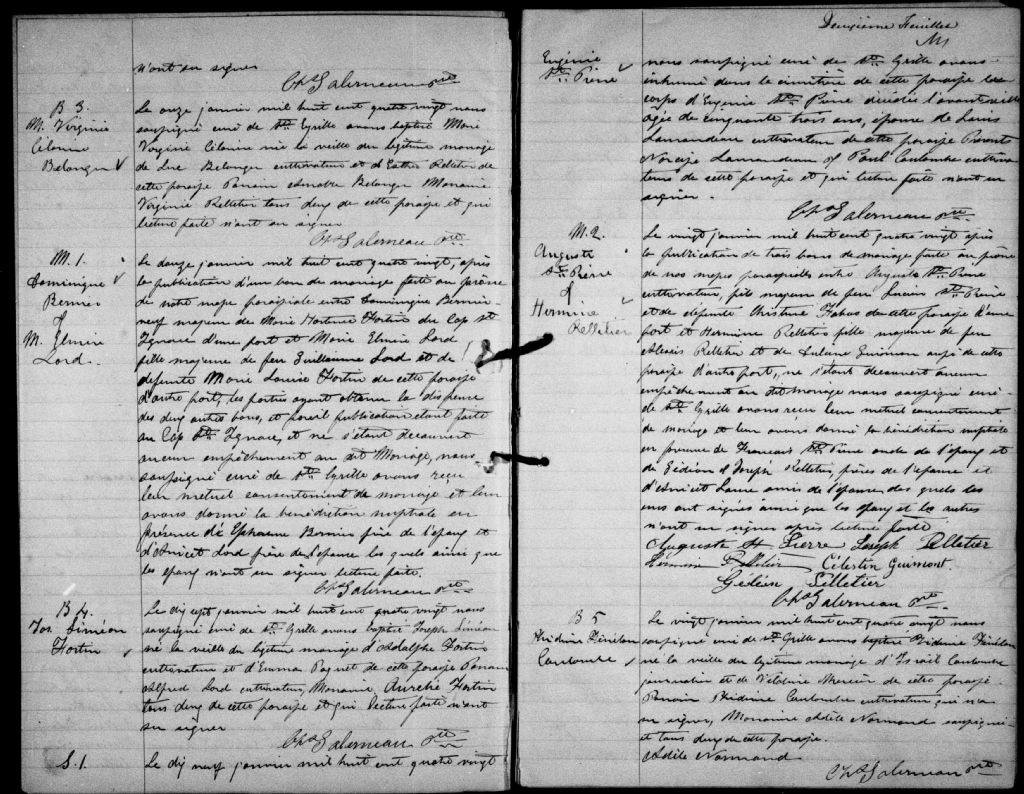 n'ont su signer
Chs Galerneau Ptre
B 3.
M. Virginie
Célonire
Belanger
Le onze janvier mil huit cent quatre vingt nous
soussigné curé de Ste Cyrille avons baptisé Marie
Virginie née la veille du légitime mariage
de Luc Belanger cultivateur et d'Esther Pelletier de
cette paroisse Parrain Amable Belanger Marraine
Virginie Pelletier tous deux de cette paroisse et qui
lecture faite n'ont su signer
Chs Galerneau Ptre
M. 1.
Dominique
Bernier
&
M. Elmire
Lord.
Le douze janvier mil huit cent quatre vingt, après
la publication d'un ban de mariage faite au prône
de notre messe paroissiale entre Dominique Bernier
neuf majeur de Marie Hortense Fortin du Cap St
Ignace d'une part et Marie Elmire Lord
fille majeure de feu Guillaume Lord et de
defunte Marie Louise Fortin de cette paroisse
d'autre part, les parties ayant obtenu la dispense
des deux autres bans, et pareil publication etant faite
au Cap St Ignace, et ne s'étant decouvert
aucun empêchement au dit Mariage, nous
soussigné curé de Ste Cyrille avons reçu
leur mutuel consentement de mariage et leur
avons donné la bénédiction nuptiale en
présence de Ephraem Bernier frère de l'epoux et
d'Anicet Lord frère de l'epouse les quels ainsi que
les epoux n'ont su signer lecture faite.
Chs Galerneau Ptre
B 4.
Jos. Siméon
Fortin
Le dix sept janvier mil huit cent quatre vingt nous
soussigné curé de St Cyrille avons baptisé Joseph Siméon
né la veille du légitime mariage d'Adolphe Fortin
cultivateur et d'Emma Paquet de cette paroisse Parrain
Alfred Lord cultivateur, Marraine Aurelie Fortin
tous deux de cette paroisse et qui lecture faite n'ont
su signer
Chs Galerneau Ptre
S. 1.
Le dix neuf janvier mil huit cent quatre vingt
Deuxième Feuillet
Eugénie
St Pierre
nous soussigné curé de Ste Cyrille avons
inhumé dans le cimetière de cette paroisse le
corps d'Eugenie St Pierre décédée l'avant veille
agée de cinquante trois ans, epouse de Louis
Lamandeau cultivateur de cette paroisse Present
Lamandeau & Paul Coulombe cultiva
teurs de cette paroisse et qui lecture faite n'ont su
signer.
Chs Galerneau Ptre
M. 2.
Auguste
St Pierre
&
Hermine
Pelletier
Le vingt janvier mil huit cent quatre vingt après
la publication de trois bans de mariage faite au prône
de nos messes paroissiales entre Auguste St Pierre
cultivateur, fils majeur de feu St Pierre
et de defunte Christine de cette paroisse d'une
part et Hermine Pelletier fille majeure de feu
Alexis Pelletier et de Guimon aussi de cette
paroisse d'autre part, ne s'étant decouvert aucun
empêchement au dit mariage nous soussigné curé
de St Cyrille avons reçu leur mutuel consentement
de mariage et leur avons donné la bénédiction nuptiale
en présence de Francois St Pierre oncle de l'epoux et
de Gédéon & Joseph Pelletier, frères de l'epouse et
d'Anicet amis de l'epouse des quels les
uns ont signés ainsi que les epoux et les autres
n'ont su signer après lecture faite
Auguste St Pierre Joseph Pelletier
Pelletier Célestin Guimont.
Gédéon Pelletier
Chs Galerneau Ptre.
B 5
Coulombe
Le vingt janvier mil huit cent quatre vingt nous
soussigné curé de St Cyrille avons baptisé
né la veille du légitime mariage d'Israel Coulombe
journalier et de Victorine Mercier de cette paroisse
Parrain Coulombe cultivateur qui n'a
su signer, Marraine Adèle Normand soussignée
et tous deux de cette paroisse.
Adèle Normand
Chs Galerneau Ptre